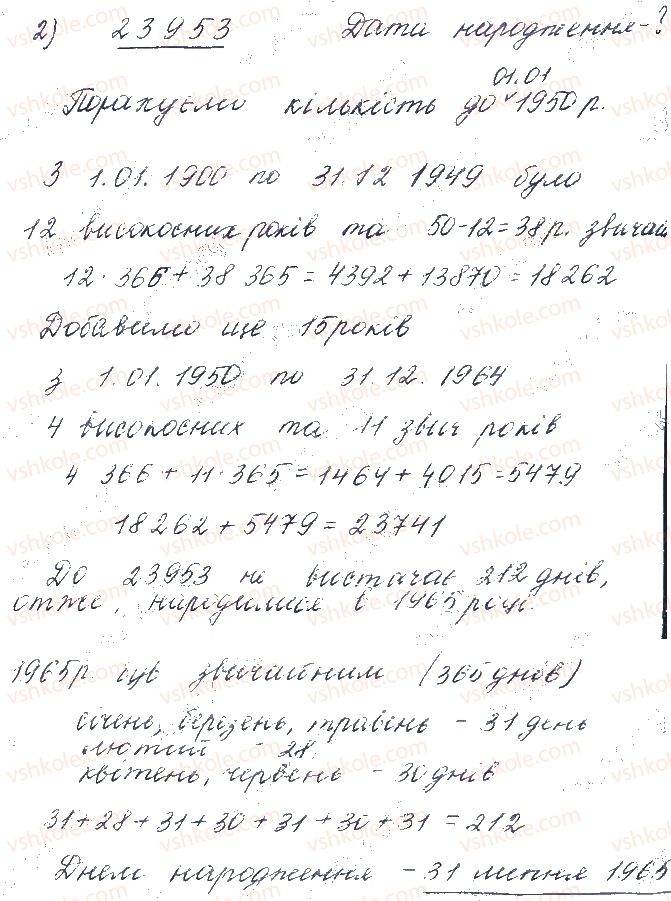 2) 23953 Дата народження-?
01.01
Порахуємо кількість до 1950 р.
З 1.01.1900 по 31.12 1949 було
12 високосних років та 50-12=38 р. звичай
12· 366 + 38 365 = 4392 + 13870 = 18262
Добавимо ще 15 років
з 1.01.1950 по 31.12.1964
4 високосних та 11 звич років
4 366 + 11·365 = 1464 + 4015 = 5479
18262 + 5479 = 23741
До 23953 не вистачає 212 днів,
отже, народилися в 1965 році.
1965 р. був звичайним (365 днів)
січень, березень, травень - 31 день
лютий - 28
квітень, червень - 30 днів
31 + 28 + 31 + 30 + 31 + 30 + 31 = 212
Днем народження - 31 липня 1965